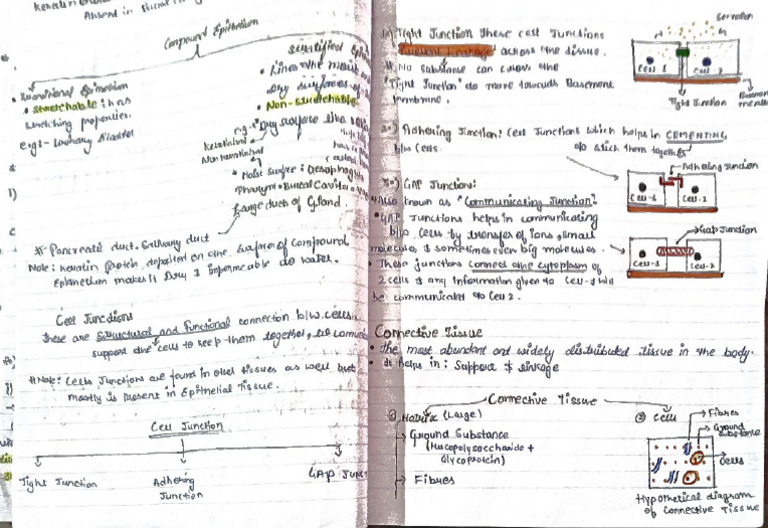 Absent in
Compound Epithelium
Transitional Epithelium
• Stretchable it has
stretching properties.
e.g:- Urinary Bladder
stratified
• Lines the moist and
Dry surfaces of
• Non-stretchable
e.g:- Dry surface
Keratinized
Non Keratinized
• Moist surface:
Pharynx • Buccal Cavity •
Large ducts of Gland.
# Pancreatic duct. Salivary duct
Note: Keratin protein deposited on the surface of compound
Epithelium makes it Dry & impermeable to water.
Cell Junctions
These are structural and functional connection b/w cells.
support the cells to keep them together, to
#Note: Cells Junctions are found in other tissues as well but
mostly is present in Epithelial Tissue.
Cell Junction
Tight Junction
Adhering
Junction
GAP
Tight Junction These cell Junctions
across the tissue.
# No substance can cross the
"Tight Junction" to move towards Basement
membrane.
Cell-1
Cell-2
Tight Junction
Basement
2) Adhering Junction: Cell Junctions which helps in CEMENTING
b/w cells.
to stick them together
Adhering Junction
Cell-2
3) GAP Junction:
Also known as "Communicating Junction"
• GAP Junctions helps in communicating
b/w cells by transfer of Ions, small
molecules & sometimes even big molecules.
• These junctions connect the cytoplasm of
2 cells & any Information given to Cell-1
be communicated to Cell 2.
Gap Junction
Cell-1
Cell-2
Connective Tissue
• The most abundant and widely distributed tissue in the body.
• It helps in: Support & linkage
Connective Tissue
① Matrix (Large)
Ground Substance
(Mucopolysaccharide +
Glycoprotein)
Fibres
② Cells
Fibres
Ground
substance
Cells
Hypothetical diagram
of Connective Tissue